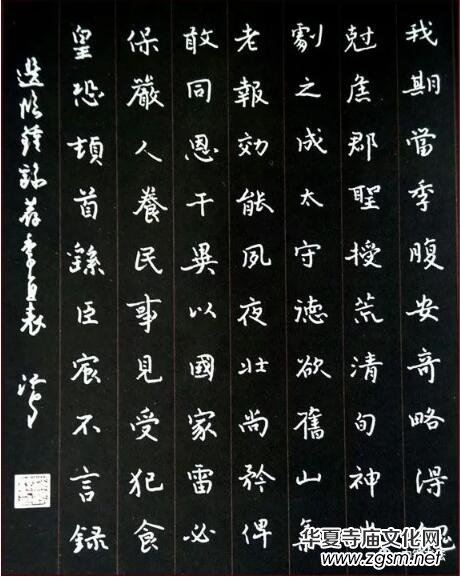 我期當季腹安奇略淂
尅焦郡聖授荒清旬神
劇之成太守德欲舊山
老報効能夙夜壯尚矜俾
敢同恩干異以國家雷必
保嚴人養民事見受犯食
皇恐頓首繇臣宸不言録
選臨鍾繇薦季直表
华夏寺庙文化网
www.zgsm.net